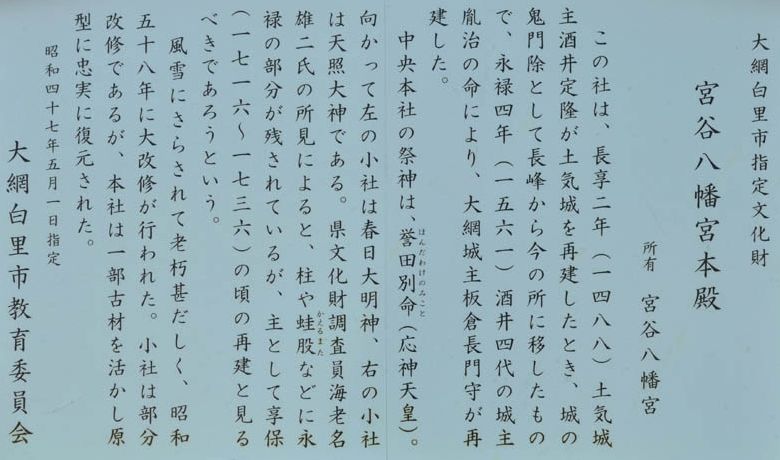 大網白里市指定文化財
宮谷八幡宮本殿
所有　宮谷八幡宮
この社は、長享二年（一四八八）土気城
主酒井定隆が土気城を再建したとき、城の
鬼門除として長峰から今の所に移したもの
で、永禄四年（一五六一）酒井四代の城主
胤治の命により、大網城主板倉長門守が再
建した。
中央本社の祭神は、誉田別命（応神天皇）。
ほんだわけのみこと
向かって左の小社は春日大明神、右の小社
は天照大神である。県文化財調査員海老名
雄二氏の所見によると、柱や蛙股などに永
かえるまた
禄の部分が残されているが、主として享保
（一七一六～一七三六）の頃の再建と見る
べきであろうという。
風雪にさらされて老朽甚だしく、昭和
五十八年に大改修が行われた。小社は部分
改修であるが、本社は一部古材を活かし原
型に忠実に復元された。
昭和四十七年五月一日指定
大網白里市教育委員会